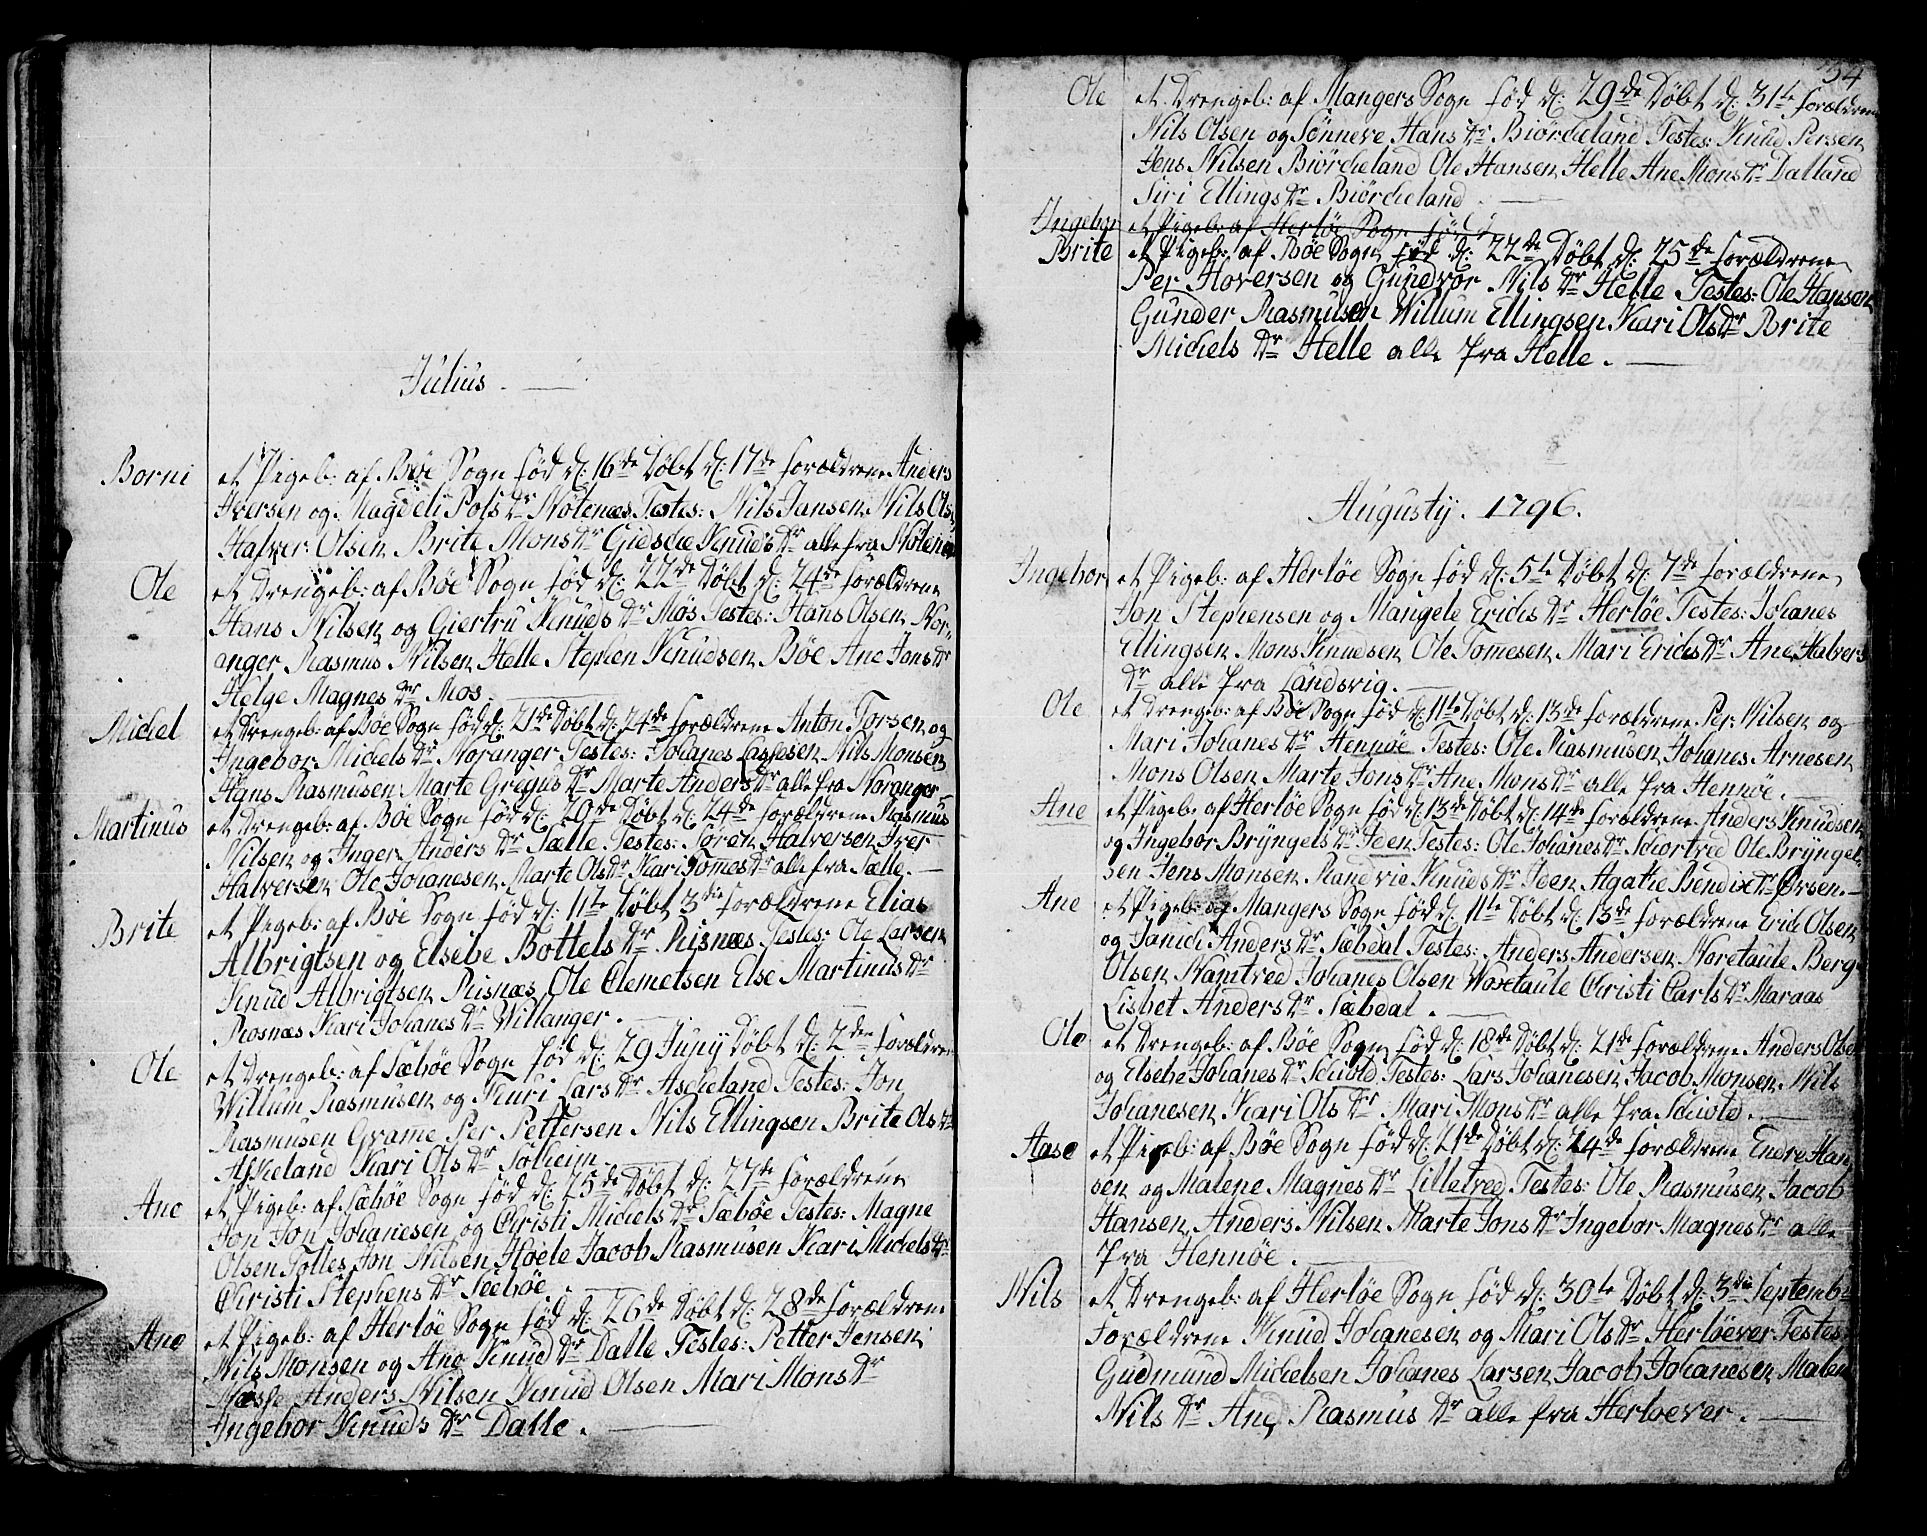 Julius.
Borni et Pigeb: af Bøe Sogn fød d: 16de Døbt d: 17de forældrene Anders
Iversen og Magdeli Pols Dr Nøtenæs Testes: Nils Jansen Nils Ols
Halver Olsen Brite Mons Dr Gidsche Knuds Dr alle fra Nøtenæs
Ole et Drengeb: af Bøe Sogn fød d: 22de Døbt d: 24de forældrene
Hans Nilsen og Giertru Knuds Dr Møs Testes: Hans Olsen Nor-
anger Rasmus Nilsen Helle Stephen Knudsen Bøe Ane Jons Dr
Helge Magnes Dr Mos.
Michel et Drengeb: af Bøe Sogn fød d: 21de Døbt d: 24de forældrene Anton Torsen og
Ingebor Michels Dr Noranger Testes: Johanes Lassesen Nils Monsen
Hans Rasmusen Marte Gregus Dr Marte Anders Dr alle fra Noranger
Martinus et Drengeb: af Bøe Sogn fød d: 20de Døbt d: 24de forældrene Rasmus
Nilsen og Inger Anders Dr Sælle Testes: Søren Halversen Iver
Halversen Ole Johanesen Marte Ols Dr Kari Tomes Dr alle fra Sælle.
Brite et Pigeb: af Bøe Sogn fød d: 11te Døbt 3die forældrene Elias
Albrigtsen og Elsebe Bottels Dr Risnæs Testes: Ole Larsen
Knud Albrigtsen Risnæs Ole Clemetsen Else Martinus Dr
Rosnæs Kari Johanes Dr Willanger.
Ole et Drengeb: af Sæbøe Sogn fød d: 29 Junij Døbt d: 2den forældrene
Willum Rasmusen og Kuri Lars Dr Ascheland Testes: Jon
Rasmusen Grame Per Pettersen Nils Ellingsen Brite Ols Dr
Askeland Kari Ols Dr Solheim
Ane et Pigeb: af Sæbøe Sogn fød d: 25de Døbt d: 27de forældrene
Jon Jon Johanesen og Christi Michels Dr Sæbøe Testes: Magne
Olsen Tolles Jon Nilsen Høele Jacob Rasmusen Kari Michels Dr
Christi Stephens Dr Seebøe.
Ane et Pigeb: af Herløe Sogn fød d: 26de Døbt d: 28de forældrene
Nils Monsen og Ane Knud Dr Dalle Testes: Petter Jensen
Næsse Anders Nilsen Knud Olsen Mari Mons Dr
Ingebor Knuds Dr Dalle.
54
Ole et Drengeb: af Mangers Sogn fød d: 29de Døbt d: 31te forældrene
Nils Olsen og Sønneve Hans Dr Biørcheland Testes: Knud Persen
Jens Nilsen Biørcheland Ole Hansen Helle Ane Mons Dr Dalland
Siri Ellings Dr Biørcheland
Ingebor et Pigeb: af Herløe Sogn fød d
Brite et Pigeb: af Bøe Sogn fød d: 22de Døbt d: 25de forældrene
Per Hoversen og Gundvor Nils Dr Helle Testes: Ole Hansen
Gunder Rasmusen Willum Ellingsen Kari Ols Dr Brite
Michels Dr Helle alle fra Helle.
Augustij. 1796.
Ingebor et Pigeb: af Herløe Sogn fød d: 5te Døbt d: 7de forældrene
Jon Stephensen og Mangele Erichs Dr Herløe Testes: Johanes
Ellingsen Mons Knudsen Ole Tomesen Mari Erichs Dr Ane Halvers
Dr alle fra Landsvig.
Ole et Drengeb: af Bøe Sogn fød d: 11te Døbt d: 13de forældrene Per Nilsen og
Mari Johanes Dr Hennøe Testes: Ole Rasmusen Johanes Arnesen
Mons Olsen Marte Jons Dr Ane Mons Dr alle fra Hennøe.
Ane et Pigeb: af Herløe Sogn fød d: 13de Døbt d: 14de forældrene Anders Knudsen
og Ingebor Bryngels Dr Iden Testes: Ole Johanes Dr Schortved Ole Bryngel-
sen Jens Monsen Randvie Knuds Dr Iden Agatie Bendix Dr Ørsen.
Ane et Pigeb: af Mangers Sogn fød d: 11te Døbt d: 13de forældrene Erich Olsen
og Janich Anders Dr Sæbdal Testes: Anders Andersen Noretaule Berge
Olsen Namtved Johanes Olsen Noretaule Christi Carls Dr Maraas
Lisbet Anders Dr Sæbdal.
Ole et Drengeb: af Bøe Sogn fød d: 18de Døbt d: 21de forældrene Anders Olsen
og Elsebe Johanes Dr Schold Testes: Lars Johanesen Jacob Monsen Nils
Johanesen Kari Ols Dr Mari Mons Dr alle fra Schold.
Aase et Pigeb: af Bøe Sogn fød d: 21de Døbt d: 24de forældrene Endre Han-
sen og Malene Magnes Dr Lilletved Testes: Ole Rasmusen Jacob
Hansen Anders Nilsen Marte Jons Dr Ingebor Magnes Dr alle
fra Hennøe.
Nils et Drengeb: af Herløe Sogn fød d: 30te Døbt d: 3die Septemb:
Forældrene Knud Johanesen og Mari Ols Dr Herløever Testes:
Gudmund Michelsen Johanes Larsen Jacob Johanesen Malene
Nils Dr Ane Rasmus Dr alle fra Herløever.